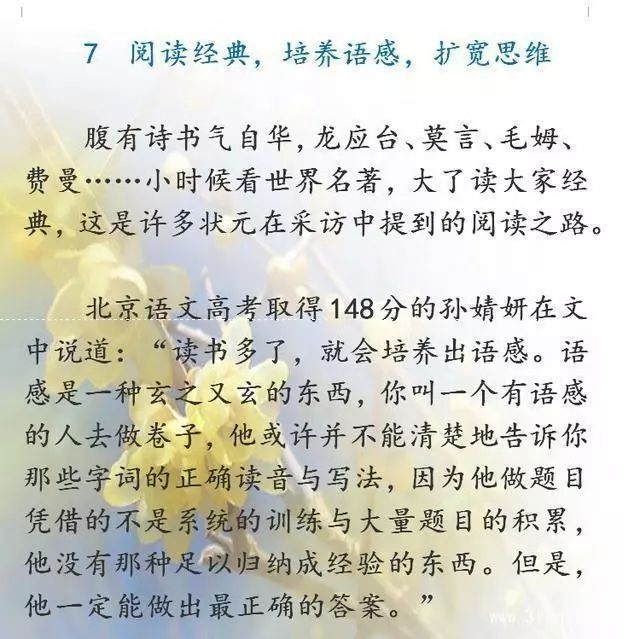 7 阅读经典，培养语感，扩宽思维
腹有诗书气自华，龙应台、莫言、毛姆、
费曼……小时候看世界名著，大了读大家经
典，这是许多状元在采访中提到的阅读之路。
北京语文高考取得148分的孙婧妍在文
中说道：“读书多了，就会培养出语感。语
感是一种玄之又玄的东西，你叫一个有语感
的人去做卷子，他或许并不能清楚地告诉你
那些字词的正确读音与写法，因为他做题目
凭借的不是系统的训练与大量题目的积累，
他没有那种足以归纳成经验的东西。但是，
他一定能做出最正确的答案。”